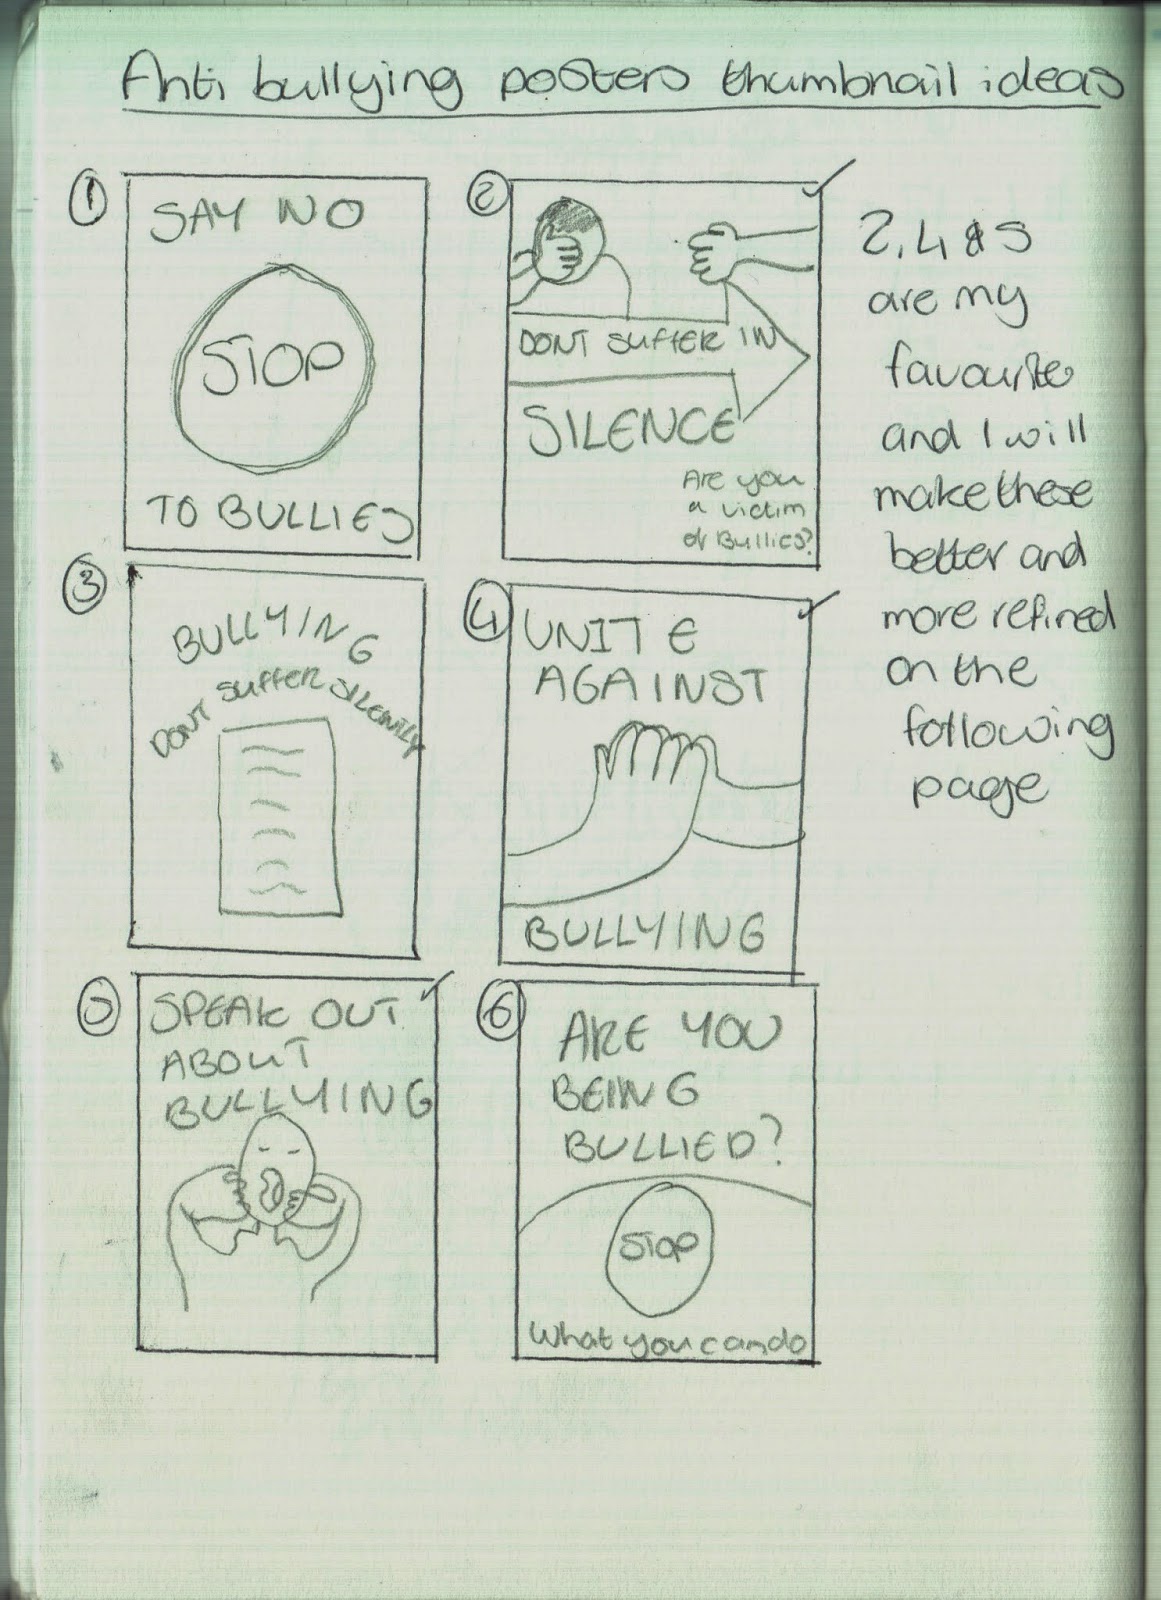 Anti bullying posters thumbnail ideas
1
SAY NO
STOP
TO BULLIES
2
DONT SUFFER IN
SILENCE
Are you
a victim
of Bullies?
3
BULLYING
DONT SUFFER SILENTLY
4
UNITE
AGAINST
BULLYING
5
SPEAK OUT
ABOUT
BULLYING
6
ARE YOU
BEING
BULLIED?
STOP
What you can do
2, 4 & 5
are my
favourite
and I will
make these
better and
more refined
on the
following
page